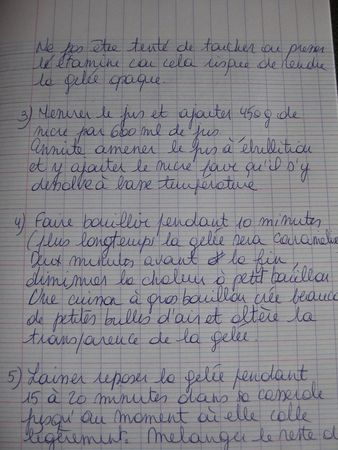 Ne pas être tenté de toucher ou presser
le étamine car cela risque de rendre
la gelée opaque.
3) Mesurer le jus et ajouter 450g de
sucre par 600 ml de jus.
Ensuite amener le jus à ébullition
et y ajouter le sucre pour qu'il s'y
dissolve à basse température
4) Faire bouillir pendant 10 minutes
(plus longtemps la gelée sera caramélisé
Deux minutes avant la fin,
diminuer la chaleur à petit bouillon
Une cuisson à gros bouillon crée beauco
de petites bulles d'air et altère la
transparence de la gelée.
5) Laisser reposer la gelée pendant
15 à 20 minutes dans sa casserole
jusqu'au moment où elle colle
légèrement. Mélanger le reste d